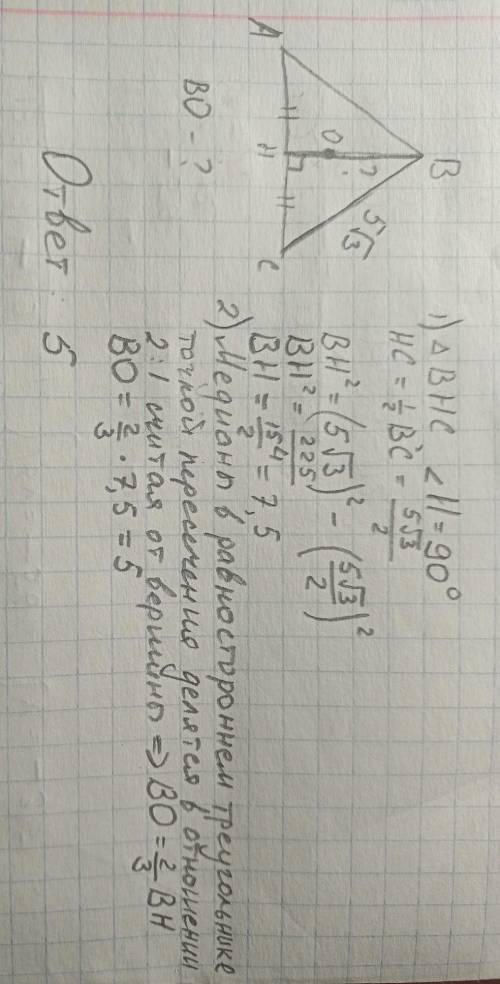 B
5√3
?
O
A
H
C
BO - ?
1) △ BHC ∠H = 90°
HC = 1/2 BC = 5√3/2
BH² = (5√3)² - (5√3/2)²
BH² = 225/4
BH = 15/2 = 7,5
2) Медианы в равностороннем треугольнике
точкой пересечения делятся в отношении
2:1 считая от вершины => BO = 2/3 BH
BO = 2/3 · 7,5 = 5
Ответ: 5